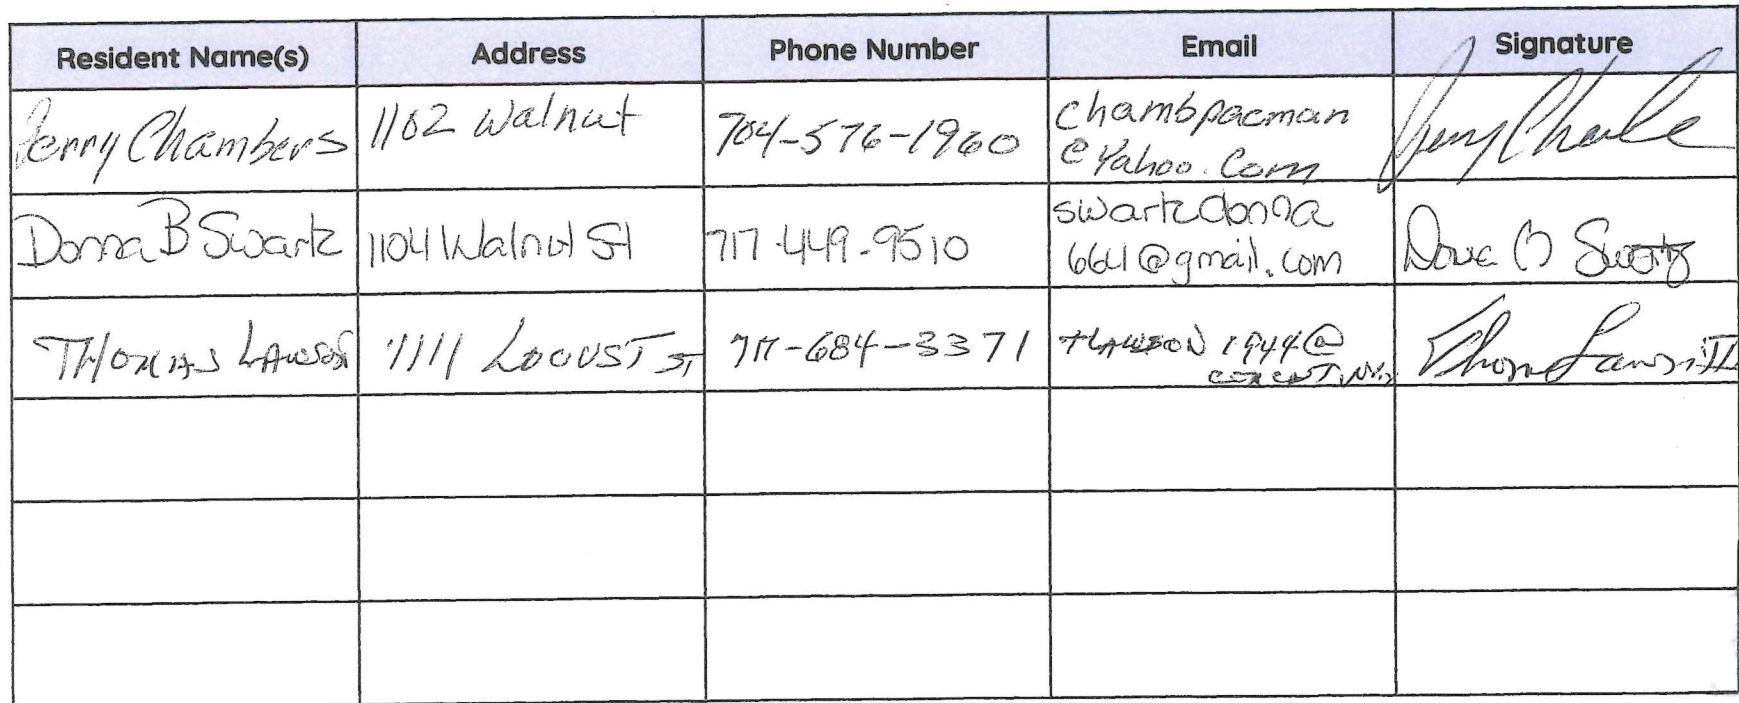 Resident Name(s) Address Phone Number Email Signature
Jerry Chambers 1102 Walnut 704-576-1960 chambpacman
@ Yahoo.Com
Donna B Swartz 1104 Walnut St 717-449-9510 swartzdonna
664@gmail.com
THOMAS LAWSON 1111 LOCUST ST 717-684-3371 TLAWSON 1944@